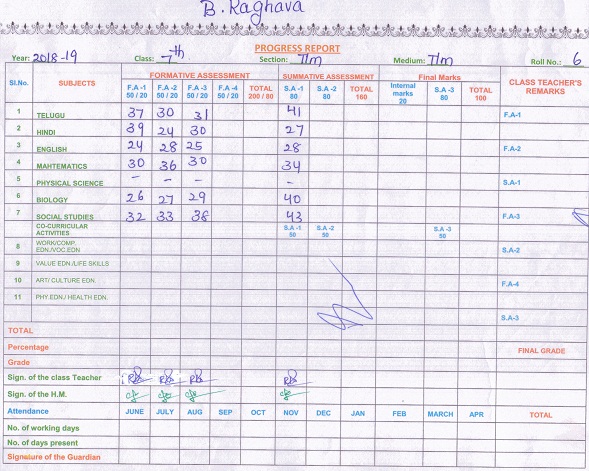 B. Raghava
PROGRESS REPORT
Year: 2018-19 Class: 7th Section: T/m Medium: T/m Roll No.: 6
Sl.No. SUBJECTS FORMATIVE ASSESSMENT SUMMATIVE ASSESSMENT Final Marks CLASS TEACHER'S REMARKS
F.A -1 50 / 20 F.A -2 50 / 20 F.A -3 50 / 20 F.A -4 50 / 20 TOTAL 200 / 80 S.A -1 80 S.A -2 80 TOTAL 160 Internal marks 20 S.A -3 80 TOTAL 100
1 TELUGU 37 30 31 41 F.A-1
2 HINDI 39 24 30 27
3 ENGLISH 24 28 25 28 F.A-2
4 MAHTEMATICS 30 36 30 34
5 PHYSICAL SCIENCE - - - - S.A-1
6 BIOLOGY 26 27 29 40
7 SOCIAL STUDIES 32 33 38 43 F.A-3
CO-CURRICULAR ACTIVITIES S.A -1 50 S.A -2 50 S.A -3 50
8 WORK/COMP. EDN./VOC.EDN S.A-2
9 VALUE EDN /LIFE SKILLS
10 ART/ CULTURE EDN. F.A-4
11 PHY.EDN./ HEALTH EDN.
S.A-3
TOTAL
Percentage FINAL GRADE
Grade
Sign. of the class Teacher
Sign. of the H.M.
Attendance JUNE JULY AUG SEP OCT NOV DEC JAN FEB MARCH APR TOTAL
No. of working days
No. of days present
Signature of the Guardian